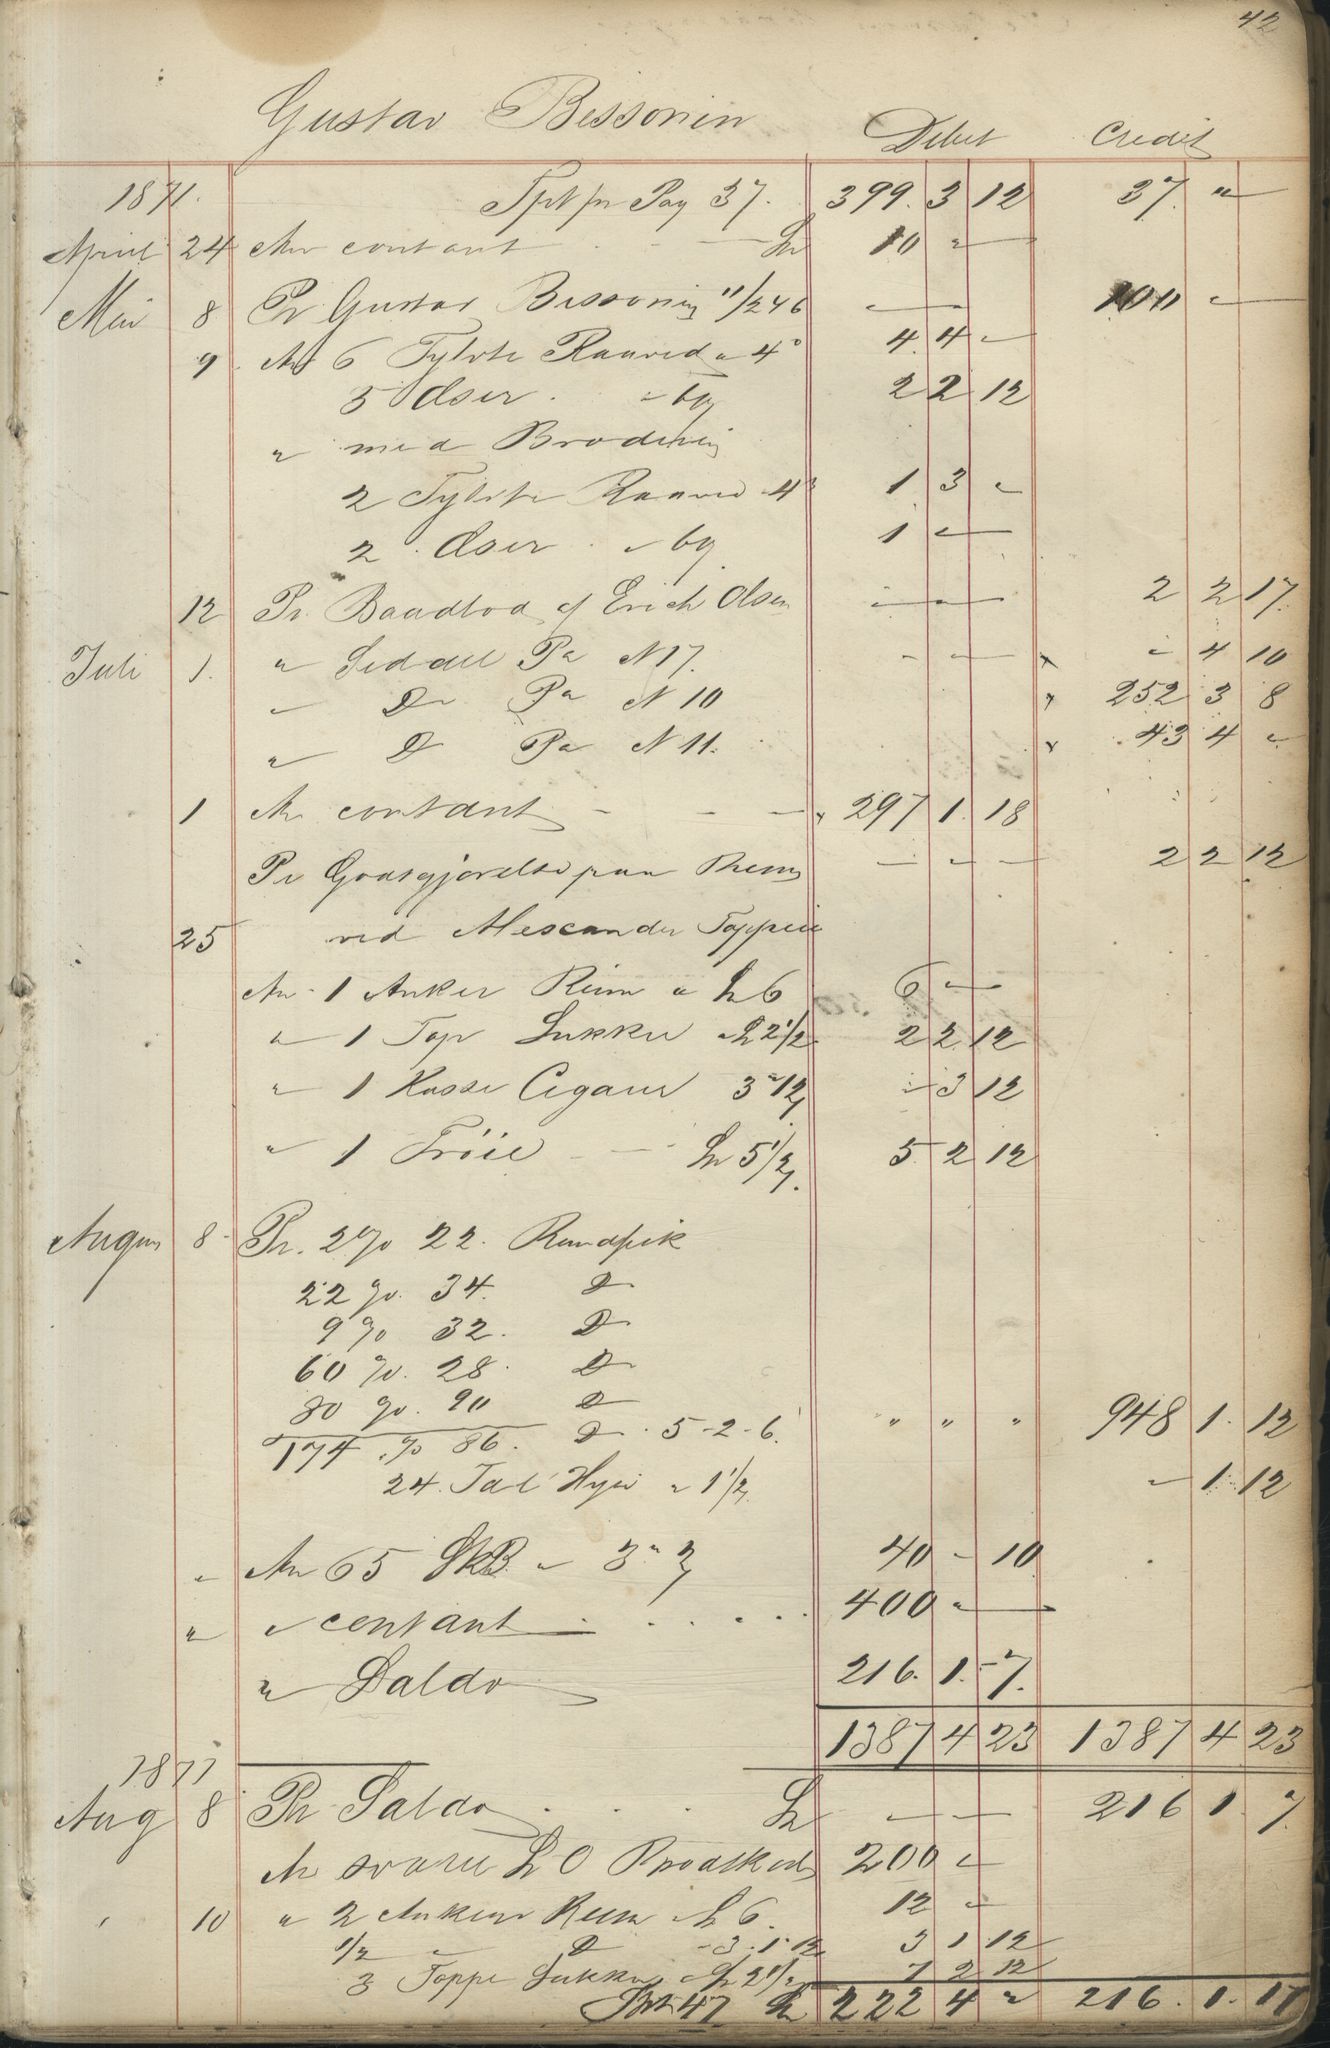 42
Gustav Bessonin Debet Credit
1871. Tpt pr Pag 37. 399. 3 12 37. "
April 24 An contant 10 "
Mai 8 Pr Gustav Bessonin 11/2 46 — 100 "
9 An 6 Tylvte Raaved a 4 4. 4 "
5 Oser. " 2 2 12
" med
2 Tylvte Raaved 4 1 3 "
2 Oser " 1 "
12 Pr. Baadlod af Erich Olsen — 2 2 17.
Juli 1. " Seddel Pa N 17. " 4 10
" Do Pa N 10 252 3 8
" Do Pa N 11. 43 4 "
1 An contant — 297 1. 18
Pr Godtgjørelse paa — 2 2 12
25 ved Alexander
An 1 Anker Rum a 6 6 "
" 1 Top Sukker a 2 1/2 2 2 12
" 1 Kasse Cigarer 3 " 12 " 3 12
" 1 Trøie 5 1/2 5. 2 12
August 8 Pr. 2 22. Rundfisk
22 34. Do
9 32. Do
60 28. Do
80 90 Do
174 86. Do. 5-2-6. " " " 948 1. 12
24. Tal 1 1/2 " 1 12
" An 65 " 3 " 40 - 10
" " contant . . . . 400 "
" Saldo 216. 1.-7.
1387 4 23 1387 4 23
1871
Aug 8 Pr Saldo . . . — 216 1. 7.
An 200 "
10 " 2 Ankere Rum a 6. 12 "
1/2 " Do - 3. 1. 12 3 1 12
3 Toppe Sukker a 2 1/2 7 2 12
47 222 4 " 216. 1. 17